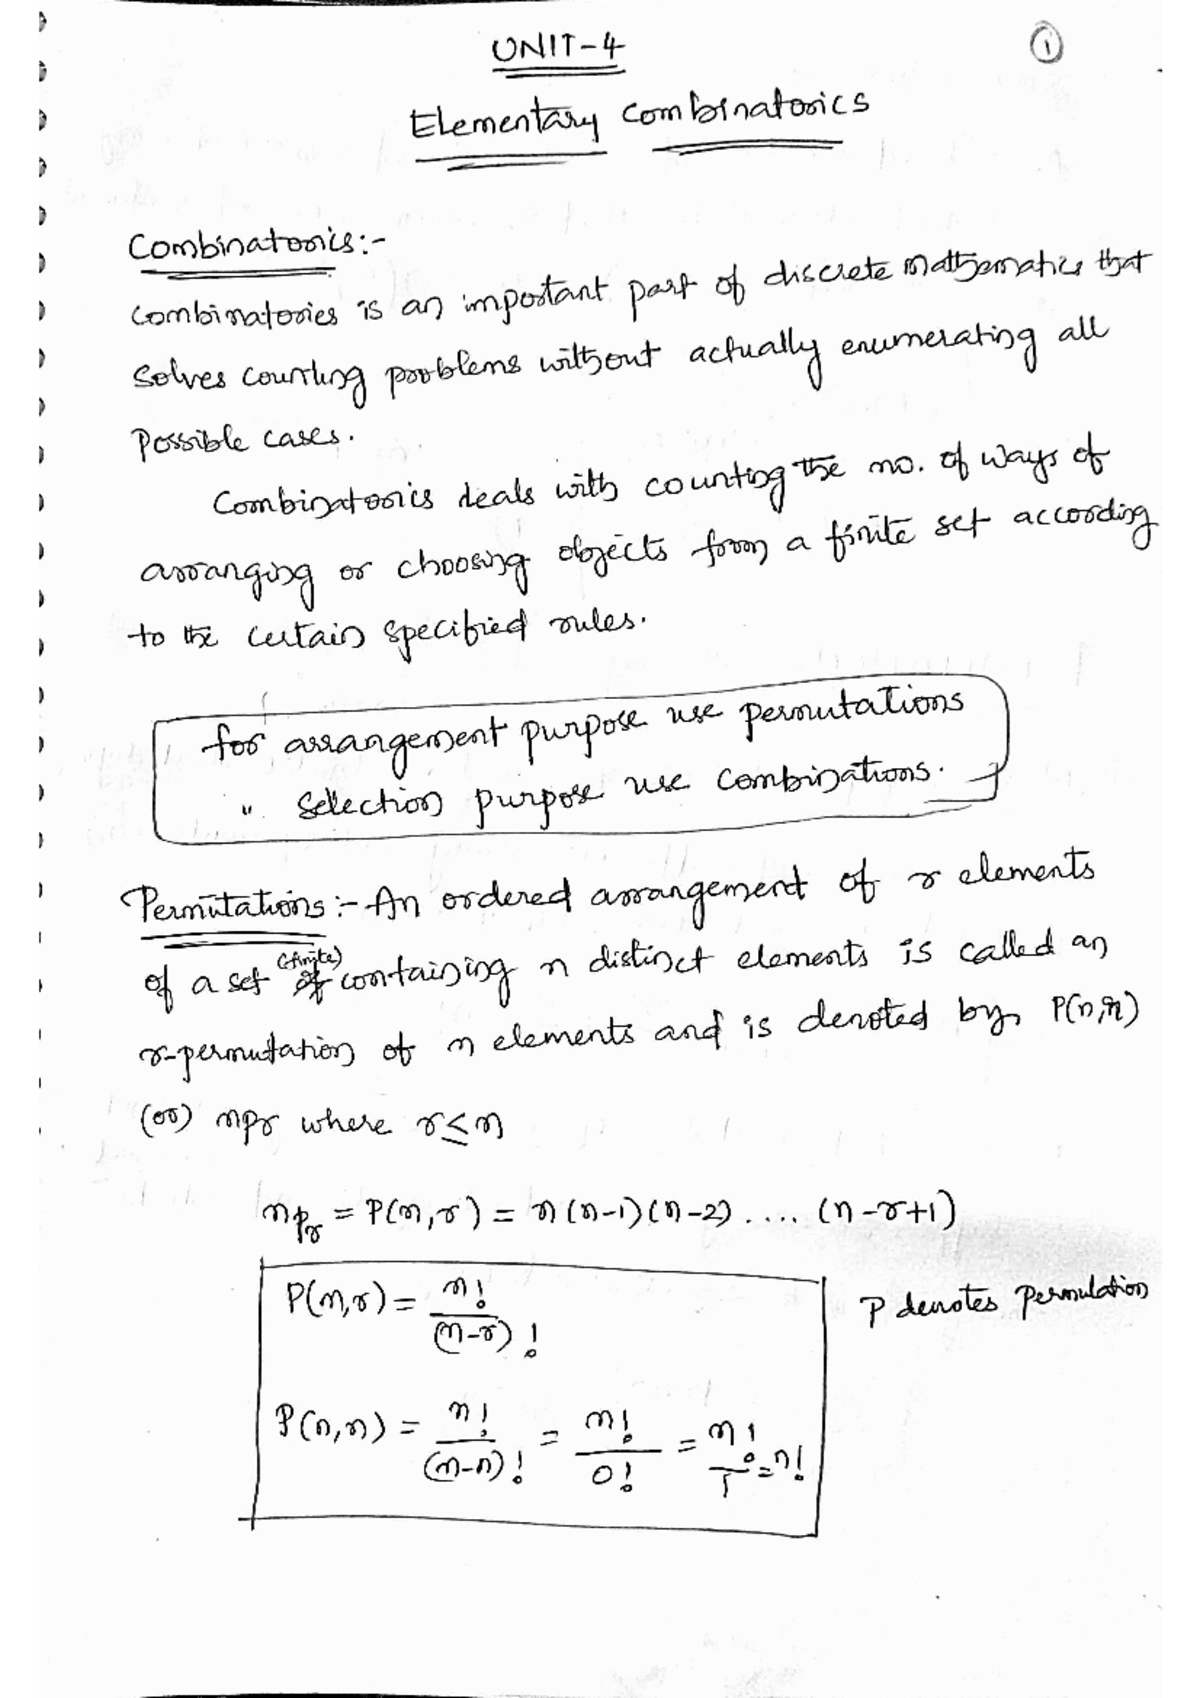 UNIT-4
1
Elementary Combinatorics
Combinatorics:-
Combinatorics is an important part of discrete mathematics that
solves counting problems without actually enumerating all
possible cases.
Combinatorics deals with counting the no. of ways of
arranging or choosing objects from a finite set according
to the certain specified rules.
for arrangement purpose use permutations
" selection purpose use combinations.
Permutations:- An ordered arrangement of r elements
(finite)
of a set containing n distinct elements is called an
r-permutation of n elements and is denoted by P(n,r)
(or) npr where r≤n
nPr = P(n,r) = n(n-1)(n-2).... (n-r+1)
P(n,r) = n!/(n-r)!
P denotes permutation
P(n,n) = n!/(n-n)! = n!/0! = n!/1 = n!